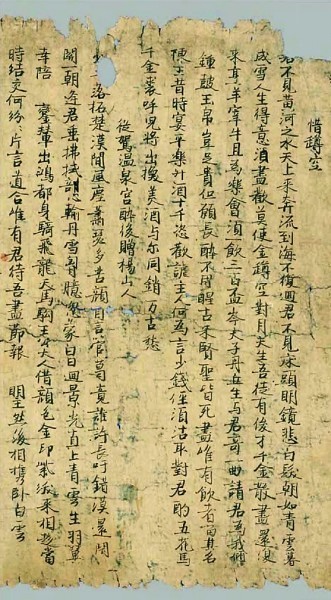 惜罇空
君不見黃河之水天上來奔流到海不復迴君不見床頭明鏡悲白髮朝如青雲暮
成雪人生得意須盡歡莫使金罇空對月天生吾徒有俊才千金散盡還復
來烹羊宰牛且為樂會須飲三百盃岑夫子丹丘生與君哥一曲請君為我傾
鍾鼓玉帛豈足貴但願長醉不用醒古來賢聖皆死盡唯有飲者留其名
陳王昔時宴平樂斗酒十千恣歡謔主人何為言少錢徑須沽取對君酌五花馬
千金裘呼兒將出換美酒与尔同銷万古愁
從駕溫泉宮醉後贈楊山人
落拓楚漢間風塵蕭瑟多苦顏自言管葛竟誰許長吁錯漠還閉
關朝逢君垂拂拭剖心輸丹雪胸臆忽蒙白日迴景光直上青雲生羽翼
幸陪鸞輦出鴻都身騎飛龍天馬駒王公大人借顏色金印紫綬來相趨當
時結交何紛〻片言道合唯有君待吾盡節報明主然後相攜臥白雲